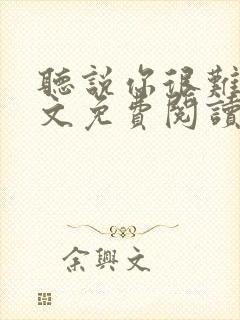 聽說你很難
文免費閱讀
余興文